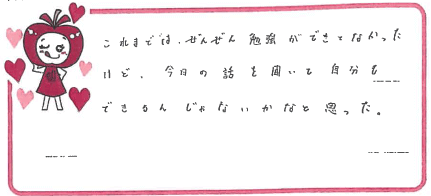 これまでは、ぜんぜん勉強ができてなかった
けど、今日の話を聞いて自分も
できるんじゃないかなと思った。